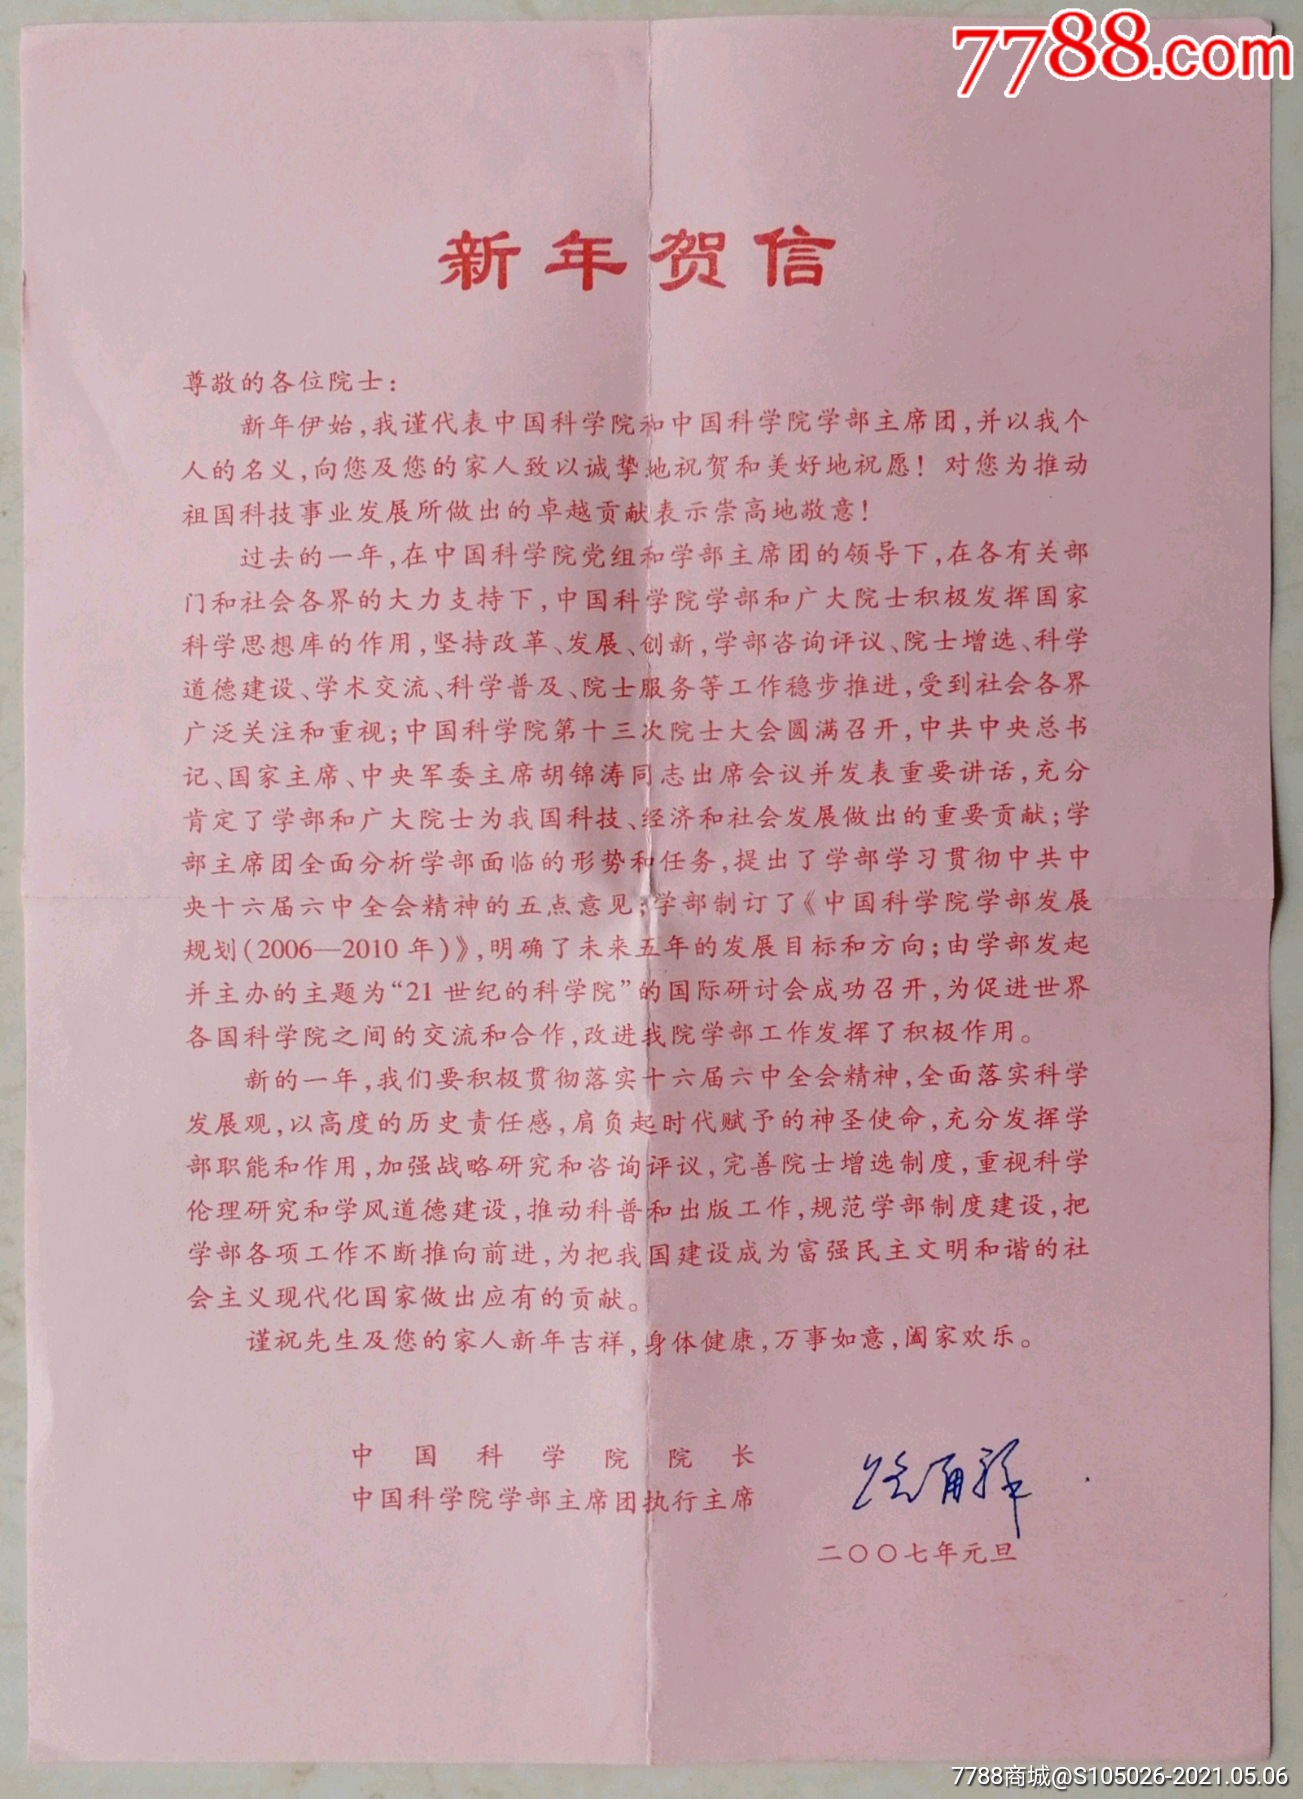 7788.com
新年贺信
尊敬的各位院士：
新年伊始，我谨代表中国科学院和中国科学院学部主席团，并以我个
人的名义，向您及您的家人致以诚挚地祝贺和美好地祝愿！对您为推动
祖国科技事业发展所做出的卓越贡献表示崇高地敬意！
过去的一年，在中国科学院党组和学部主席团的领导下，在各有关部
门和社会各界的大力支持下，中国科学院学部和广大院士积极发挥国家
科学思想库的作用，坚持改革、发展、创新，学部咨询评议、院士增选、科学
道德建设、学术交流、科学普及、院士服务等工作稳步推进，受到社会各界
广泛关注和重视；中国科学院第十三次院士大会圆满召开，中共中央总书
记、国家主席、中央军委主席胡锦涛同志出席会议并发表重要讲话，充分
肯定了学部和广大院士为我国科技、经济和社会发展做出的重要贡献；学
部主席团全面分析学部面临的形势和任务，提出了学部学习贯彻中共中
央十六届六中全会精神的五点意见；学部制订了《中国科学院学部发展
规划（2006—2010年）》，明确了未来五年的发展目标和方向；由学部发起
并主办的主题为“21世纪的科学院”的国际研讨会成功召开，为促进世界
各国科学院之间的交流和合作，改进我院学部工作发挥了积极作用。
新的一年，我们要积极贯彻落实十六届六中全会精神，全面落实科学
发展观，以高度的历史责任感，肩负起时代赋予的神圣使命，充分发挥学
部职能和作用，加强战略研究和咨询评议，完善院士增选制度，重视科学
伦理研究和学风道德建设，推动科普和出版工作，规范学部制度建设，把
学部各项工作不断推向前进，为把我国建设成为富强民主文明和谐的社
会主义现代化国家做出应有的贡献。
谨祝先生及您的家人新年吉祥，身体健康，万事如意，阖家欢乐。
中国科学院院长
中国科学院学部主席团执行主席
路甬祥
二〇〇七年元旦
7788商城@S105026-2021.05.06